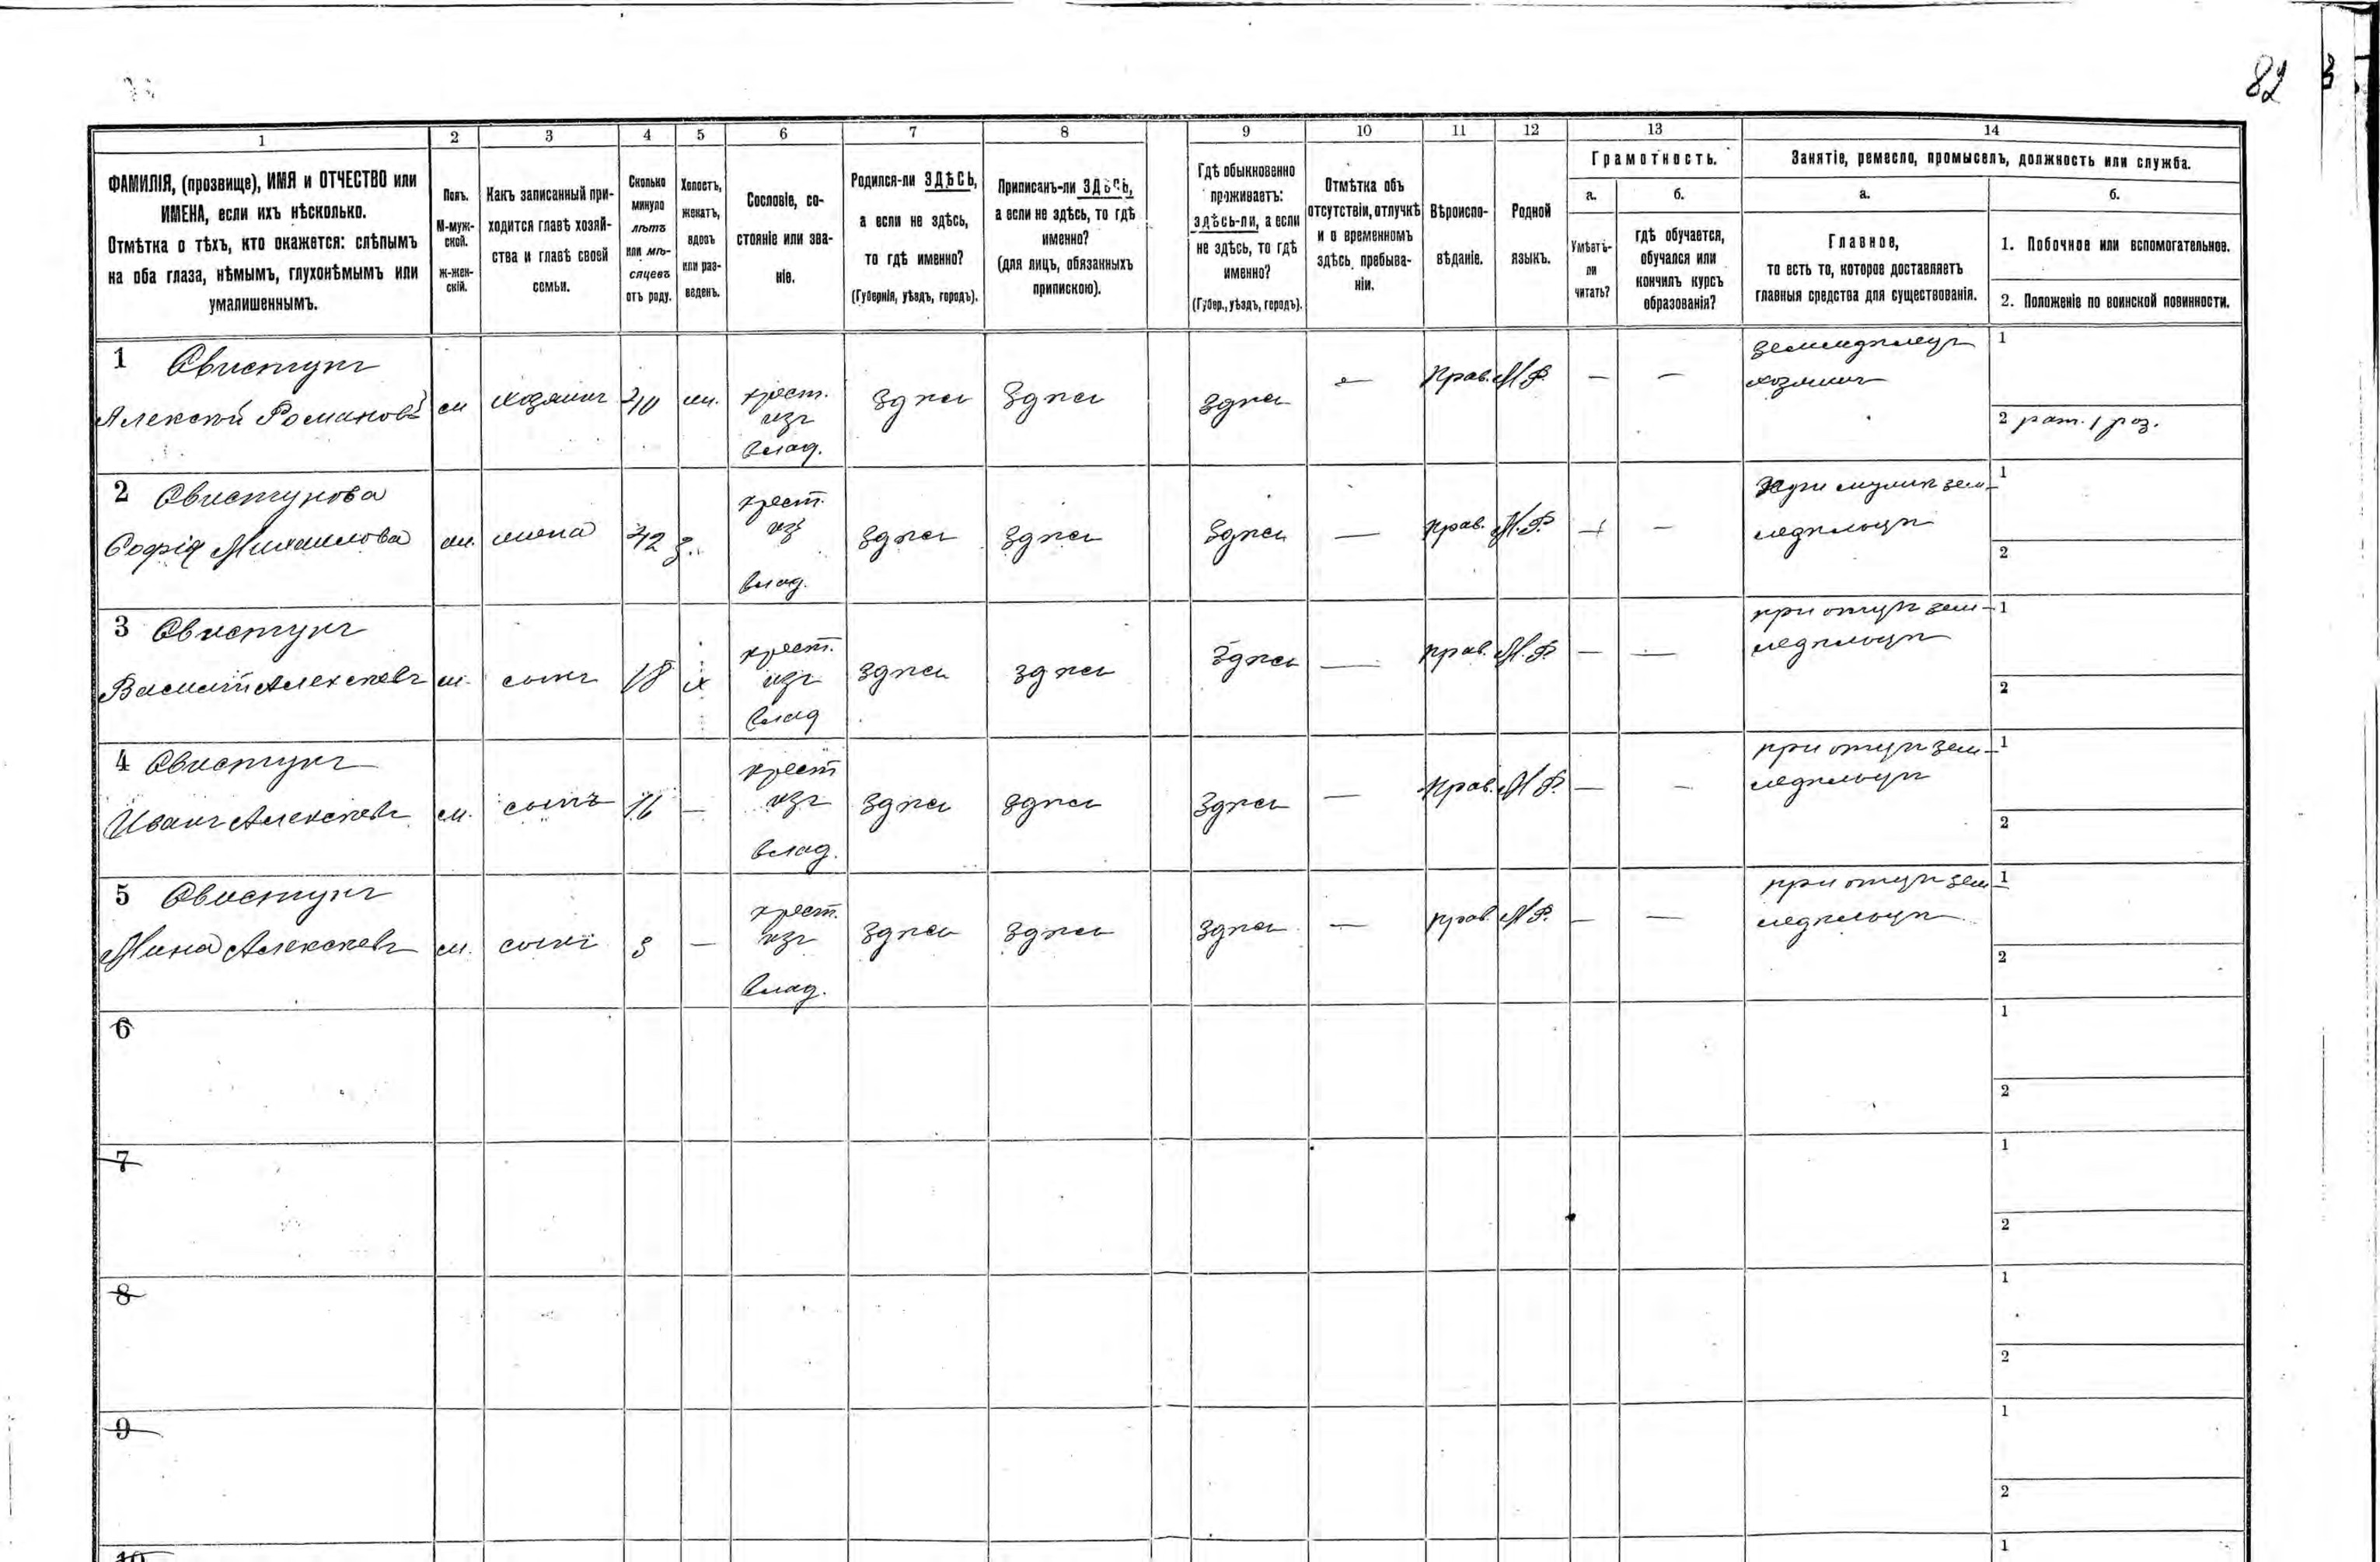 82
1 2 3 4 5 6 7 8 9 10 11 12 13 14
ФАМИЛІЯ, (прозвище), ИМЯ и ОТЧЕСТВО или
ИМЕНА, если ихъ нѣсколько.
Отмѣтка о тѣхъ, кто окажется: слѣпымъ
на оба глаза, нѣмымъ, глухонѣмымъ или
умалишеннымъ.
Полъ.
М-муж-
ской.
ж-жен-
скій.
Какъ записанный при-
ходится главѣ хозяй-
ства и главѣ своей
семьи.
Сколько
минуло
лѣтъ
или мѣ-
сяцевъ
отъ роду.
Холостъ,
женатъ,
вдовъ
или раз-
веденъ.
Сословіе, со-
стояніе или зва-
ніе.
Родился-ли ЗДѢСЬ,
а если не здѣсь,
то гдѣ именно?
(Губернія, уѣздъ, городъ).
Приписанъ-ли ЗДѢСЬ,
а если не здѣсь, то гдѣ
именно?
(для лицъ, обязанныхъ
припискою).
Гдѣ обыкновенно
проживаетъ:
здѣсь-ли, а если
не здѣсь, то гдѣ
именно?
(Губер., уѣздъ, городъ).
Отмѣтка объ
отсутствіи, отлучкѣ
и о временномъ
здѣсь пребыва-
ніи.
Вѣроиспо-
вѣданіе.
Родной
языкъ.
Грамотность.
а.
Умѣетъ-
ли
читать?
б.
гдѣ обучается,
обучался или
кончилъ курсъ
образованія?
Занятіе, ремесло, промыселъ, должность или служба.
а.
Главное,
то есть то, которое доставляетъ
главныя средства для существованія.
б.
1. Побочное или вспомогательное.
2. Положеніе по воинской повинности.
1 Свистунъ
Алексѣй Романовъ
м хозяинъ 40 ж. крест. изъ влад. здѣсь здѣсь здѣсь — Прав. М.Р. — —
земледѣлецъ
хозяинъ
1
2 рат. 1 раз.
2 Свистунова
Софія Михаилова
ж. жена 42 з. крест. изъ влад. здѣсь здѣсь здѣсь — прав. М.Р. — —
При мужѣ зем-
ледѣльцѣ
1
2
3 Свистунъ
Василій Алексѣевъ
м. сынъ 18 х крест. изъ влад здѣсь здѣсь здѣсь — прав. М.Р. — —
при отцѣ зем-
ледѣльцѣ
1
2
4 Свистунъ
Иванъ Алексѣевъ
м. сынъ 16 — крест изъ влад. здѣсь здѣсь здѣсь — Прав. М.Р. — —
при отцѣ зем-
ледѣльцѣ
1
2
5 Свистунъ
Мина Алексѣевъ
м. сынъ — крест. изъ влад. здѣсь здѣсь здѣсь — прав. М.Р. — —
при отцѣ зем-
ледѣльцѣ
1
2
6
1
2
7
1
2
8
1
2
9
1
2
10
1